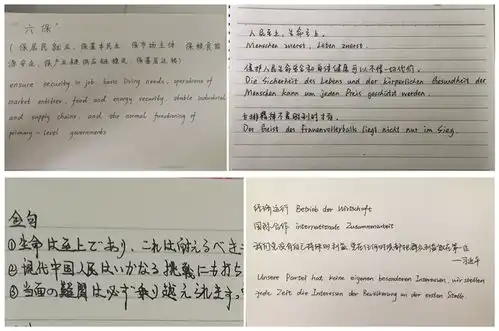 "六保"
(保居民就业、保基本民生、保市场主体、保粮食能
源安全、保产业链供应链稳定、保基层运转)
ensure security in job, basic living needs, operations of
market entities, food and energy security, stable industrial
and supply chains, and the normal functioning of
primary-level governments
人民至上,生命至上。
Menschen zuerst, Leben zuerst.
保护人民生命安全和身体健康可以不惜一切代价。
Die Sicherheit des Lebens und der körperlichen Gesundheit der
Menschen kann um jeden Preis geschützt werden.
女排精神不是赢的时候才有。
Der Geist des Frauenvolleyballs liegt nicht nur im Sieg.
金句
①生命は至上であり、これは耐えるべき
②現代中国人民はいかなる挑戦にも打ち
③当面の難関は必ず乗り越えられます。
经济运行 Betrieb der Wirtschaft
国际合作 internationale Zusammenarbeit
我们党没有自己特殊的利益,党在任何时候都把群众利益放在第一位
——习近平
Unsere Partei hat keine eigenen besonderen Interessen, wir stellen
jede Zeit die Interessen der Bevölkerung an der ersten Stelle.